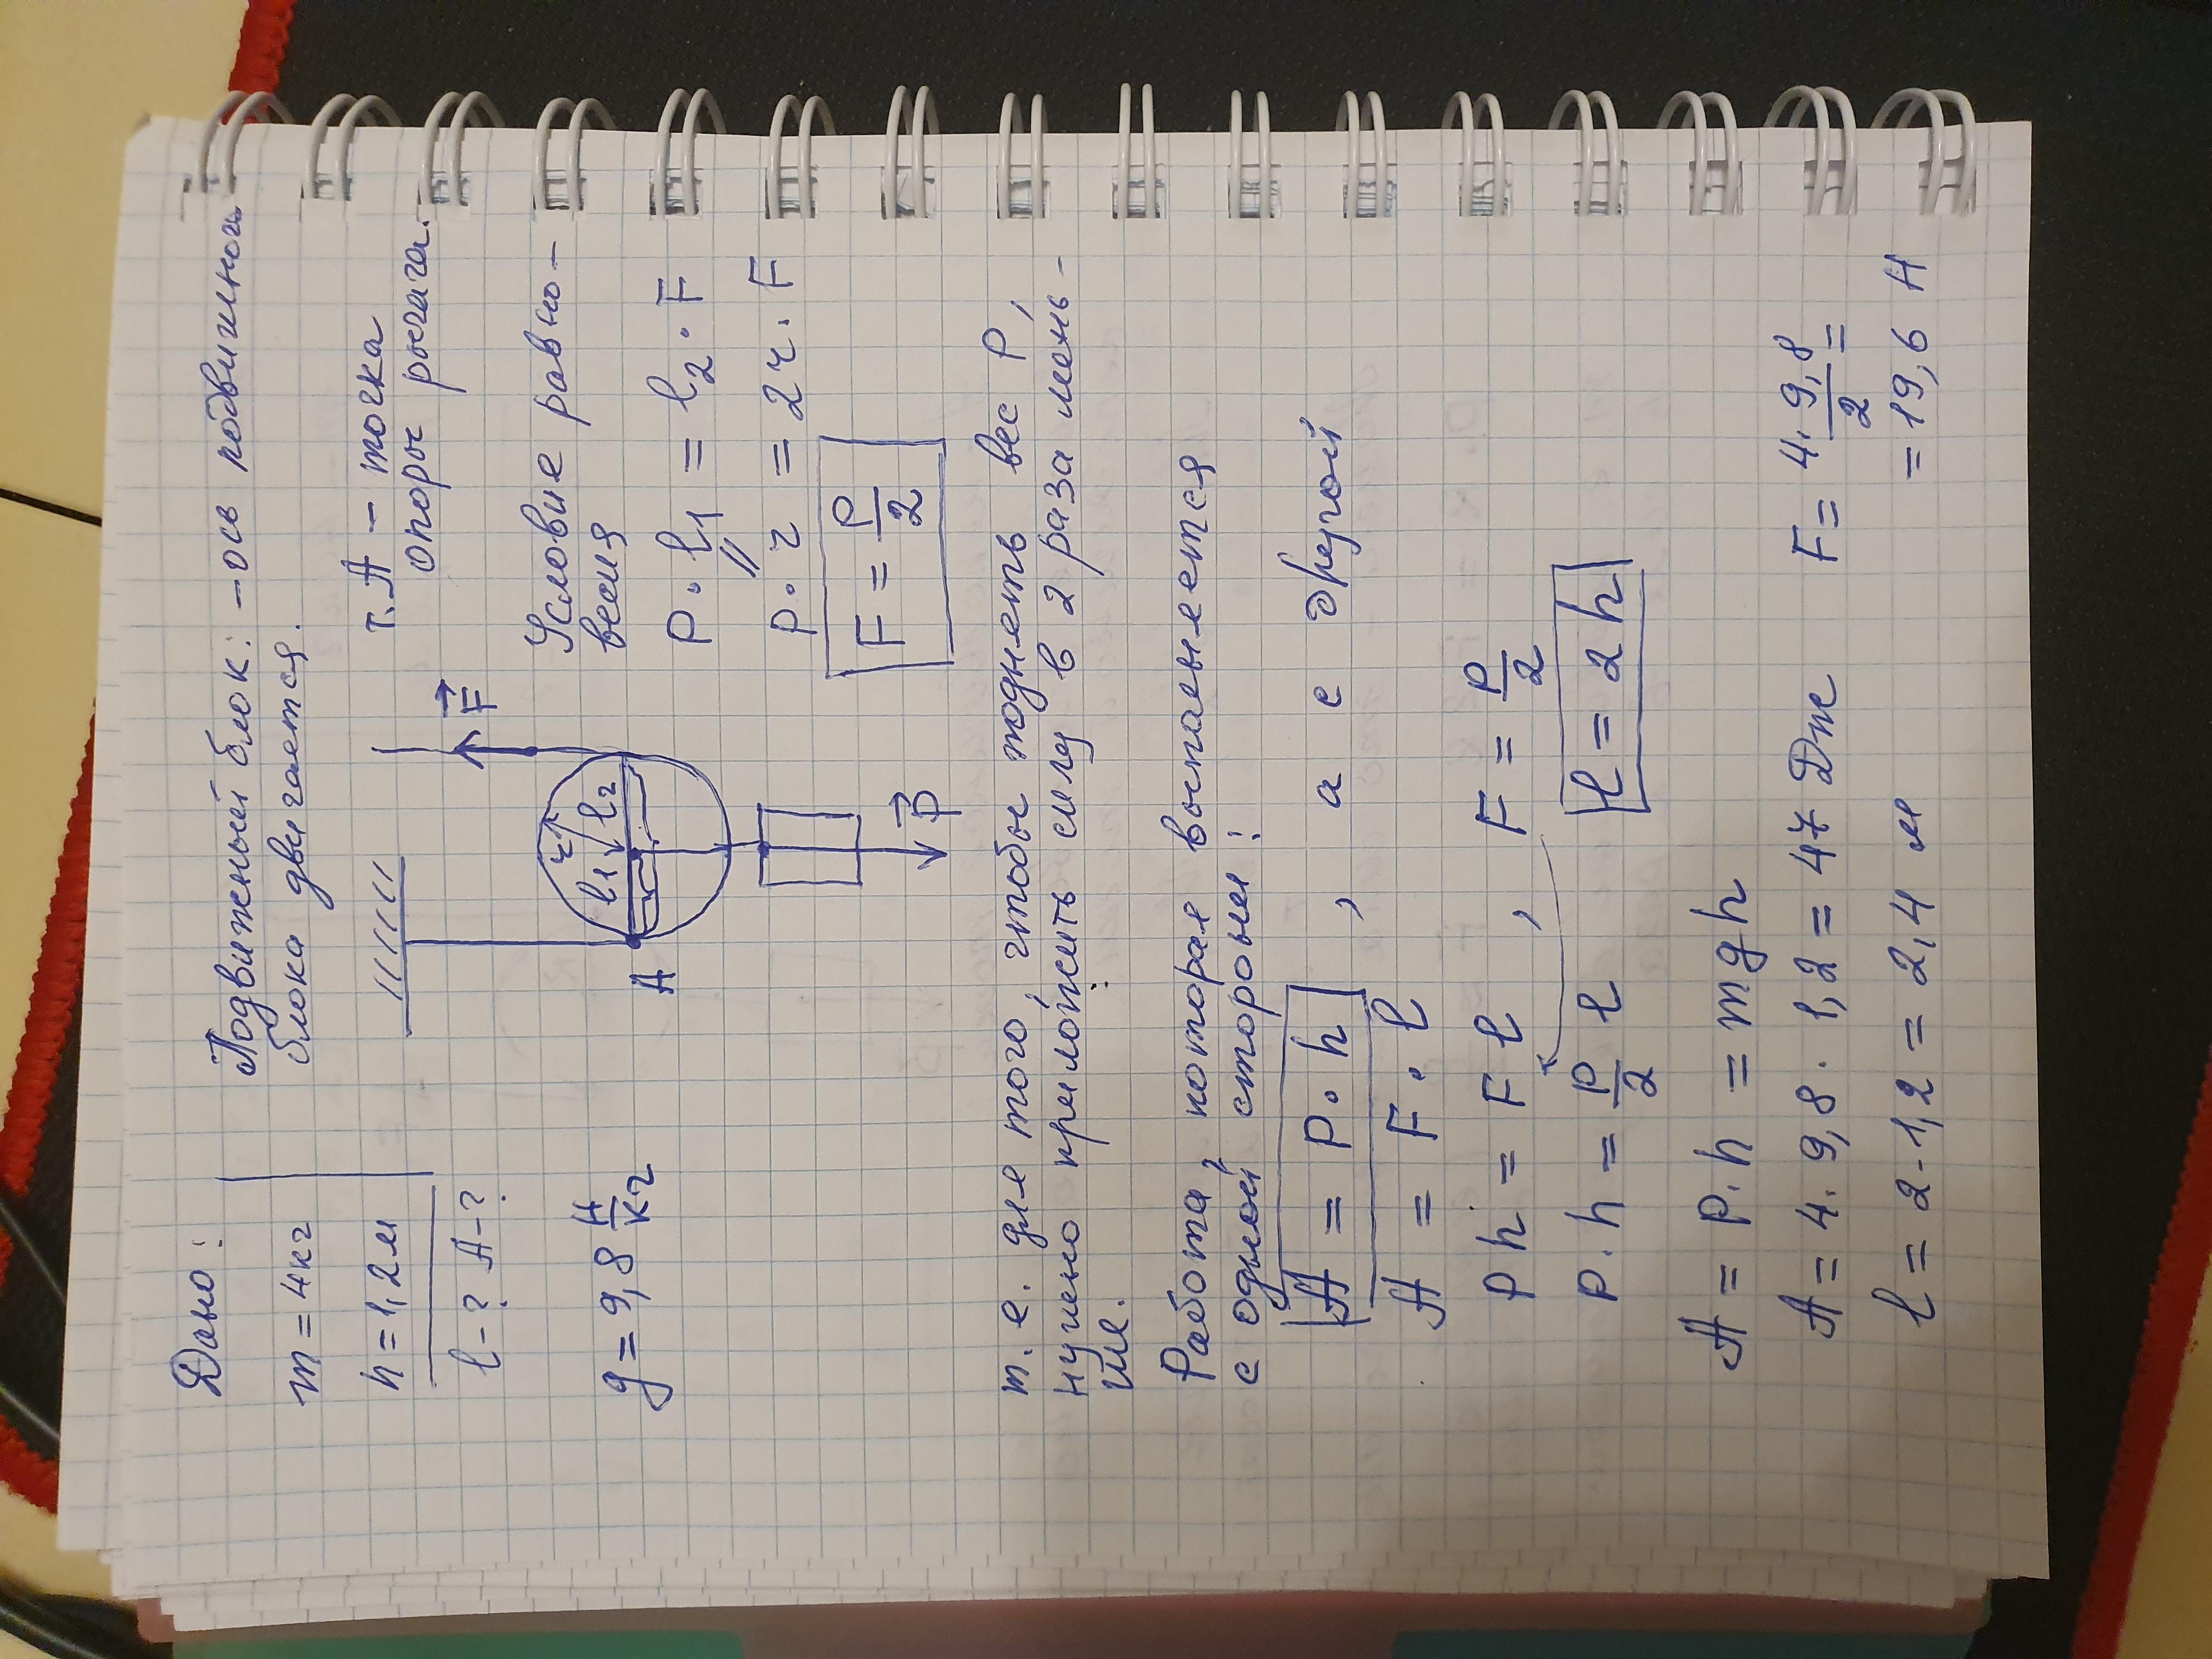 Дано:
m = 4кг
h = 1,2м
l - ? A - ?
g = 9,8 Н/кг
Подвижный блок: - ось подвижного
блока двигается.
т. А - точка
опоры рычага.
F
A
r
l1
l2
P
Условие равно-
весия
P · l1 = l2 · F
P · r = 2r · F
F = P/2
т. е. для того, чтобы поднять вес P,
нужно приложить силу в 2 раза мень-
ше.
Работа, которая выполняется
с одной стороны:
A = P · h, а с другой
A = F · l
P h = F l, F = P/2
P · h = P/2 l
l = 2 h
A = P · h = mgh
A = 4 · 9,8 · 1,2 = 47 Дж
F = 4 · 9,8/2 =
= 19,6 Н
l = 2 · 1,2 = 2,4 м